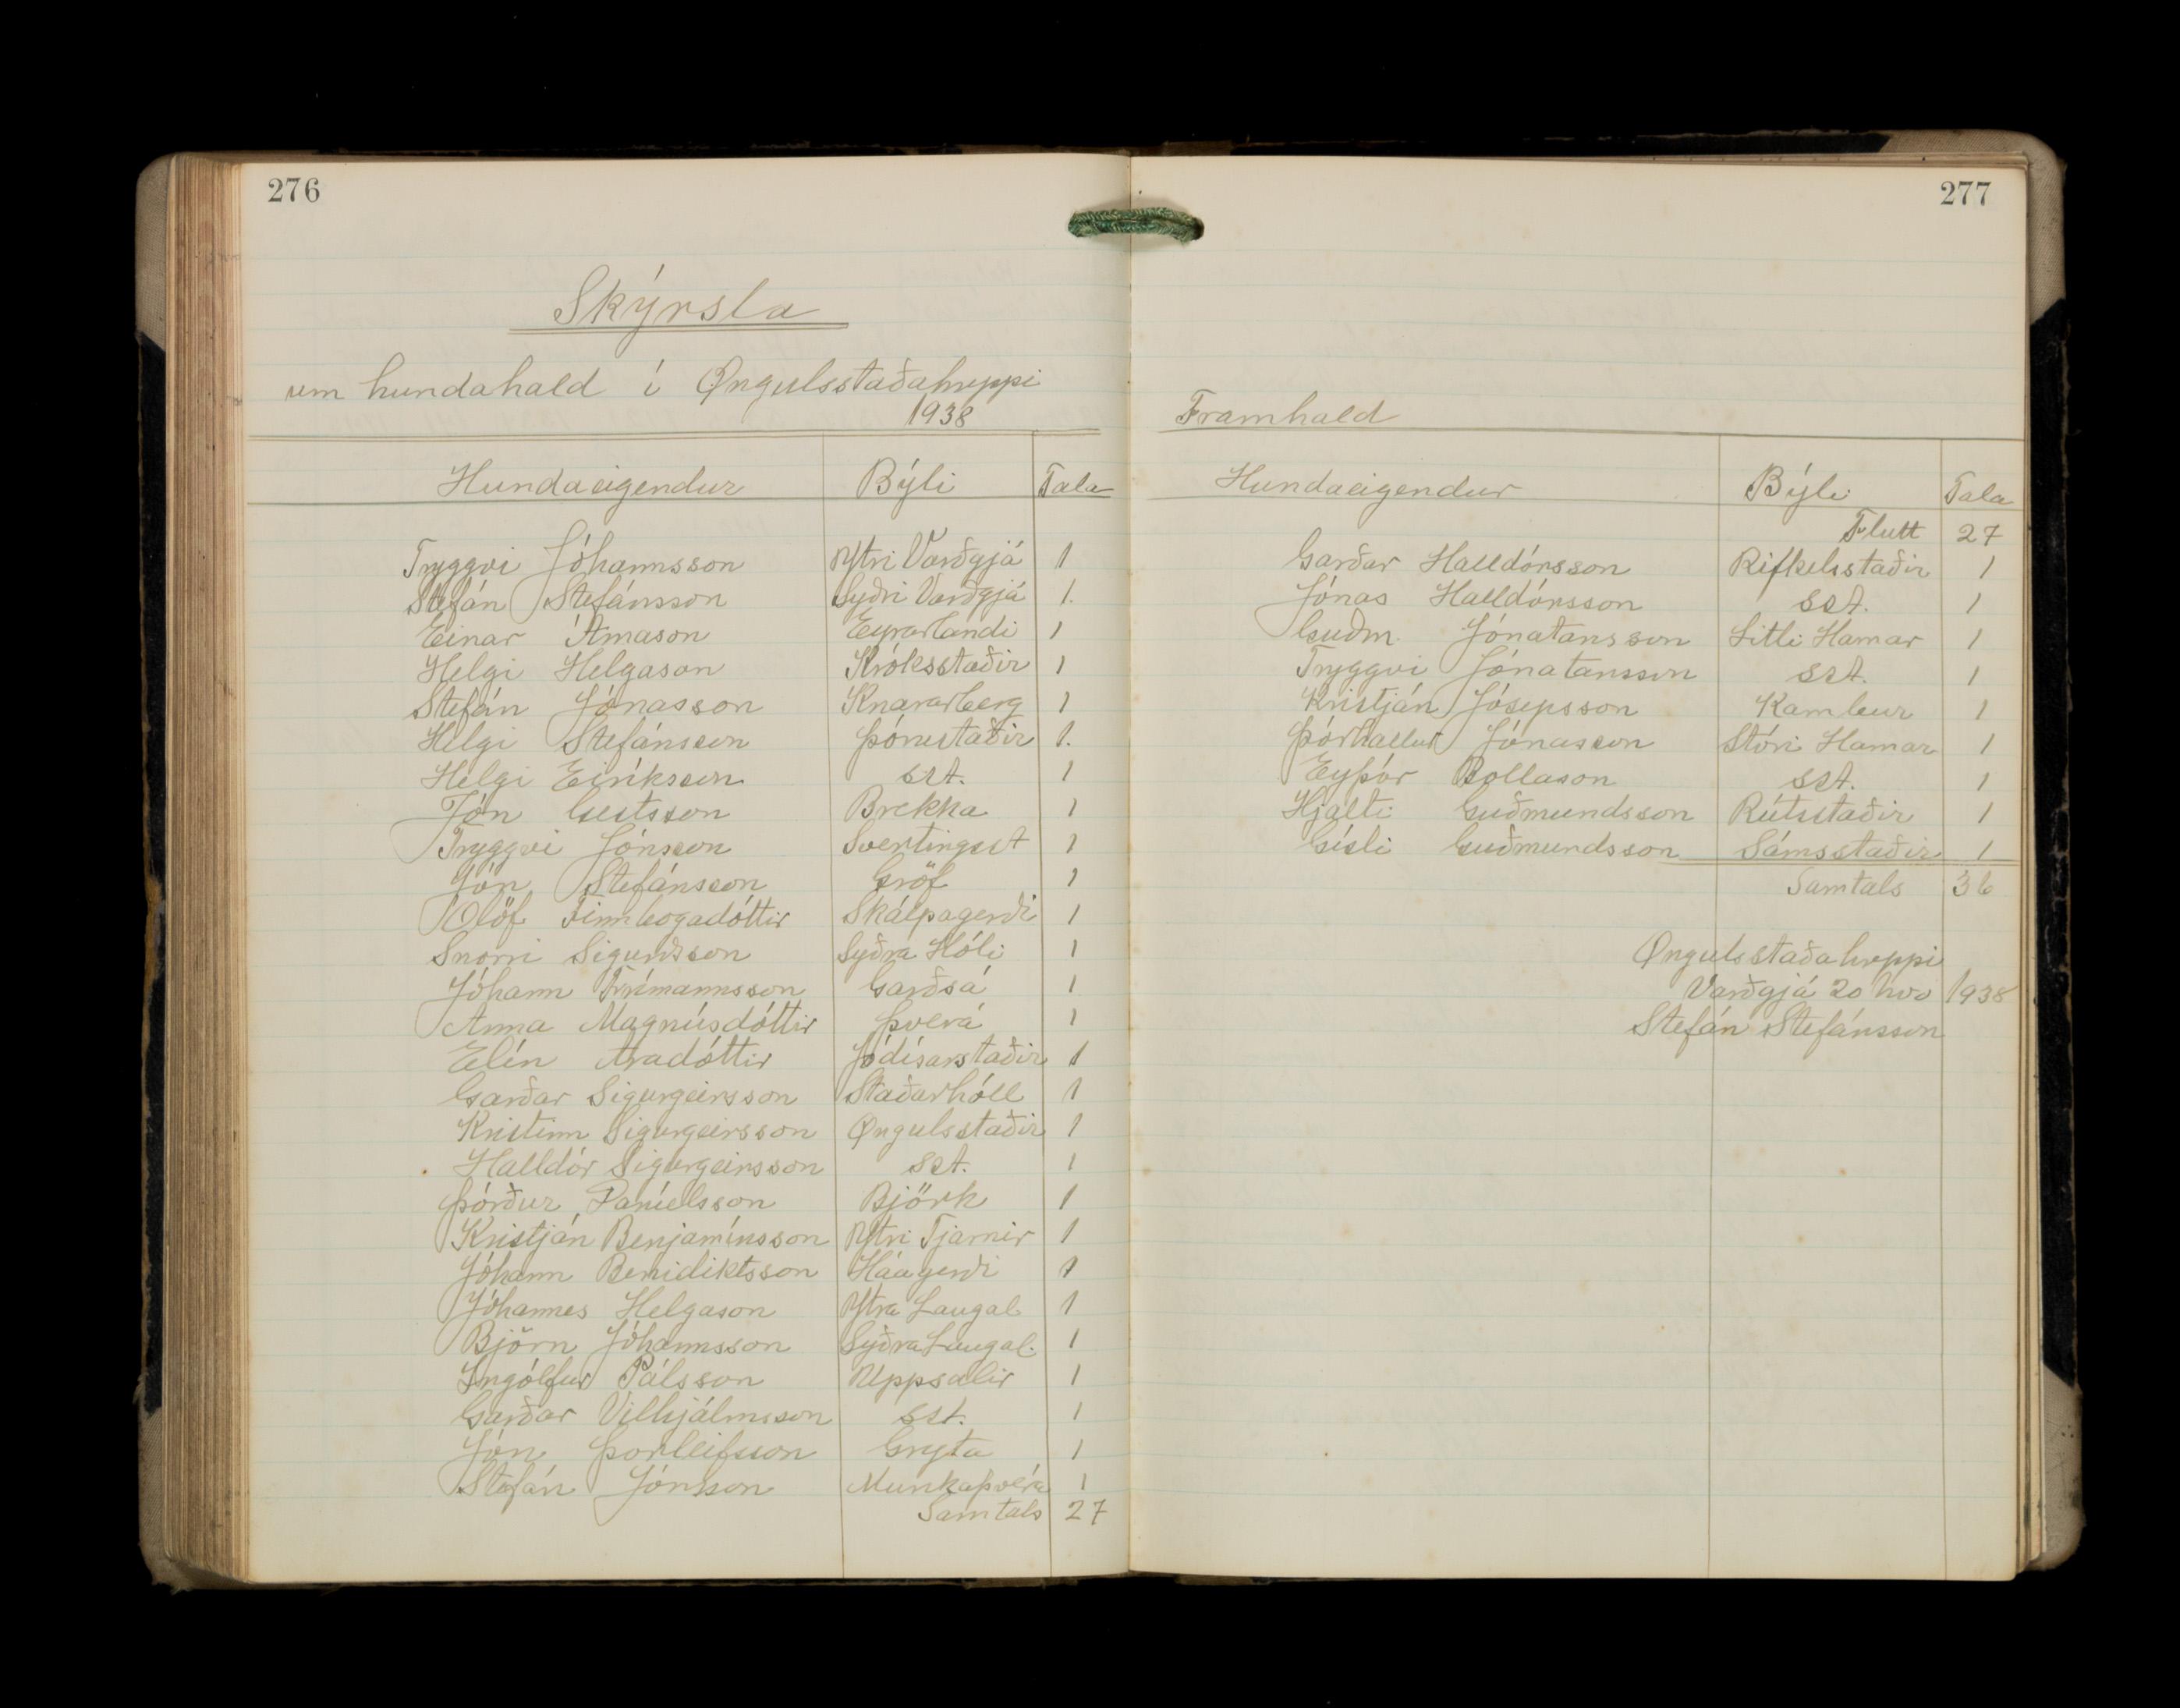 276
Skýrsla
um hundahald í Øngulsstaðahreppi
1938
Hundaeigendur Býli Tala
Tryggvi Jóhannsson Ytri Varðgjá 1
Stefán Stefánsson Syðri Varðgjá 1.
Einar Árnason Eyrarlandi 1
Helgi Helgason Króksstaðir 1
Stefán Jónasson Knararberg 1
Helgi Stefánsson Þórustaðir 1.
Helgi Eiríksson sst. 1
Jón Gestsson Brekka 1
Tryggvi Jónsson Svertingsst 1
Jón Stefánsson Gröf 1
Ólöf Finnbogadóttir Skálpagerði 1
Snorri Sigurðsson Syðra Hóli 1
Jóhann Frímannsson Garðsá 1
Anna Magnúsdóttir Þverá 1
Elín Aradóttir Jódísarstaðir 1
Garðar Sigurgeirsson Staðarhóll 1
Kristinn Sigurgeirsson Øngulsstaðir 1
Halldór Sigurgeirsson sst. 1
Þórður Daníelsson Björk 1
Kristján Benjamínsson Ytri Tjarnir 1
Jóhann Benidiktsson Háagerði 1
Jóhannes Helgason Ytra Laugal 1
Björn Jóhannsson Syðra Laugal. 1
Ingólfur Pálsson Uppsalir 1
Garðar Vilhjálmsson sst. 1
Jón Þorleifsson Grýta 1
Stefán Jónsson Munkaþverá 1
Samtals 27
277
Framhald
Hundaeigendur Býli Tala
Flutt 27
Garðar Halldórsson Rifkelsstaðir 1
Jónas Halldórsson sst. 1
Guðm Jónatansson Litli Hamar 1
Tryggvi Jónatansson sst. 1
Kristján Jósepsson Kambur 1
Þórhallur Jónasson Stóri Hamar 1
Eyþór Bollason sst. 1
Hjalti Guðmundsson Rútsstaðir 1
Gísli Guðmundsson Sámsstaðir 1
Samtals 36
Øngulsstaðahreppi
Varðgjá 20 nov 1938
Stefán Stefánsson